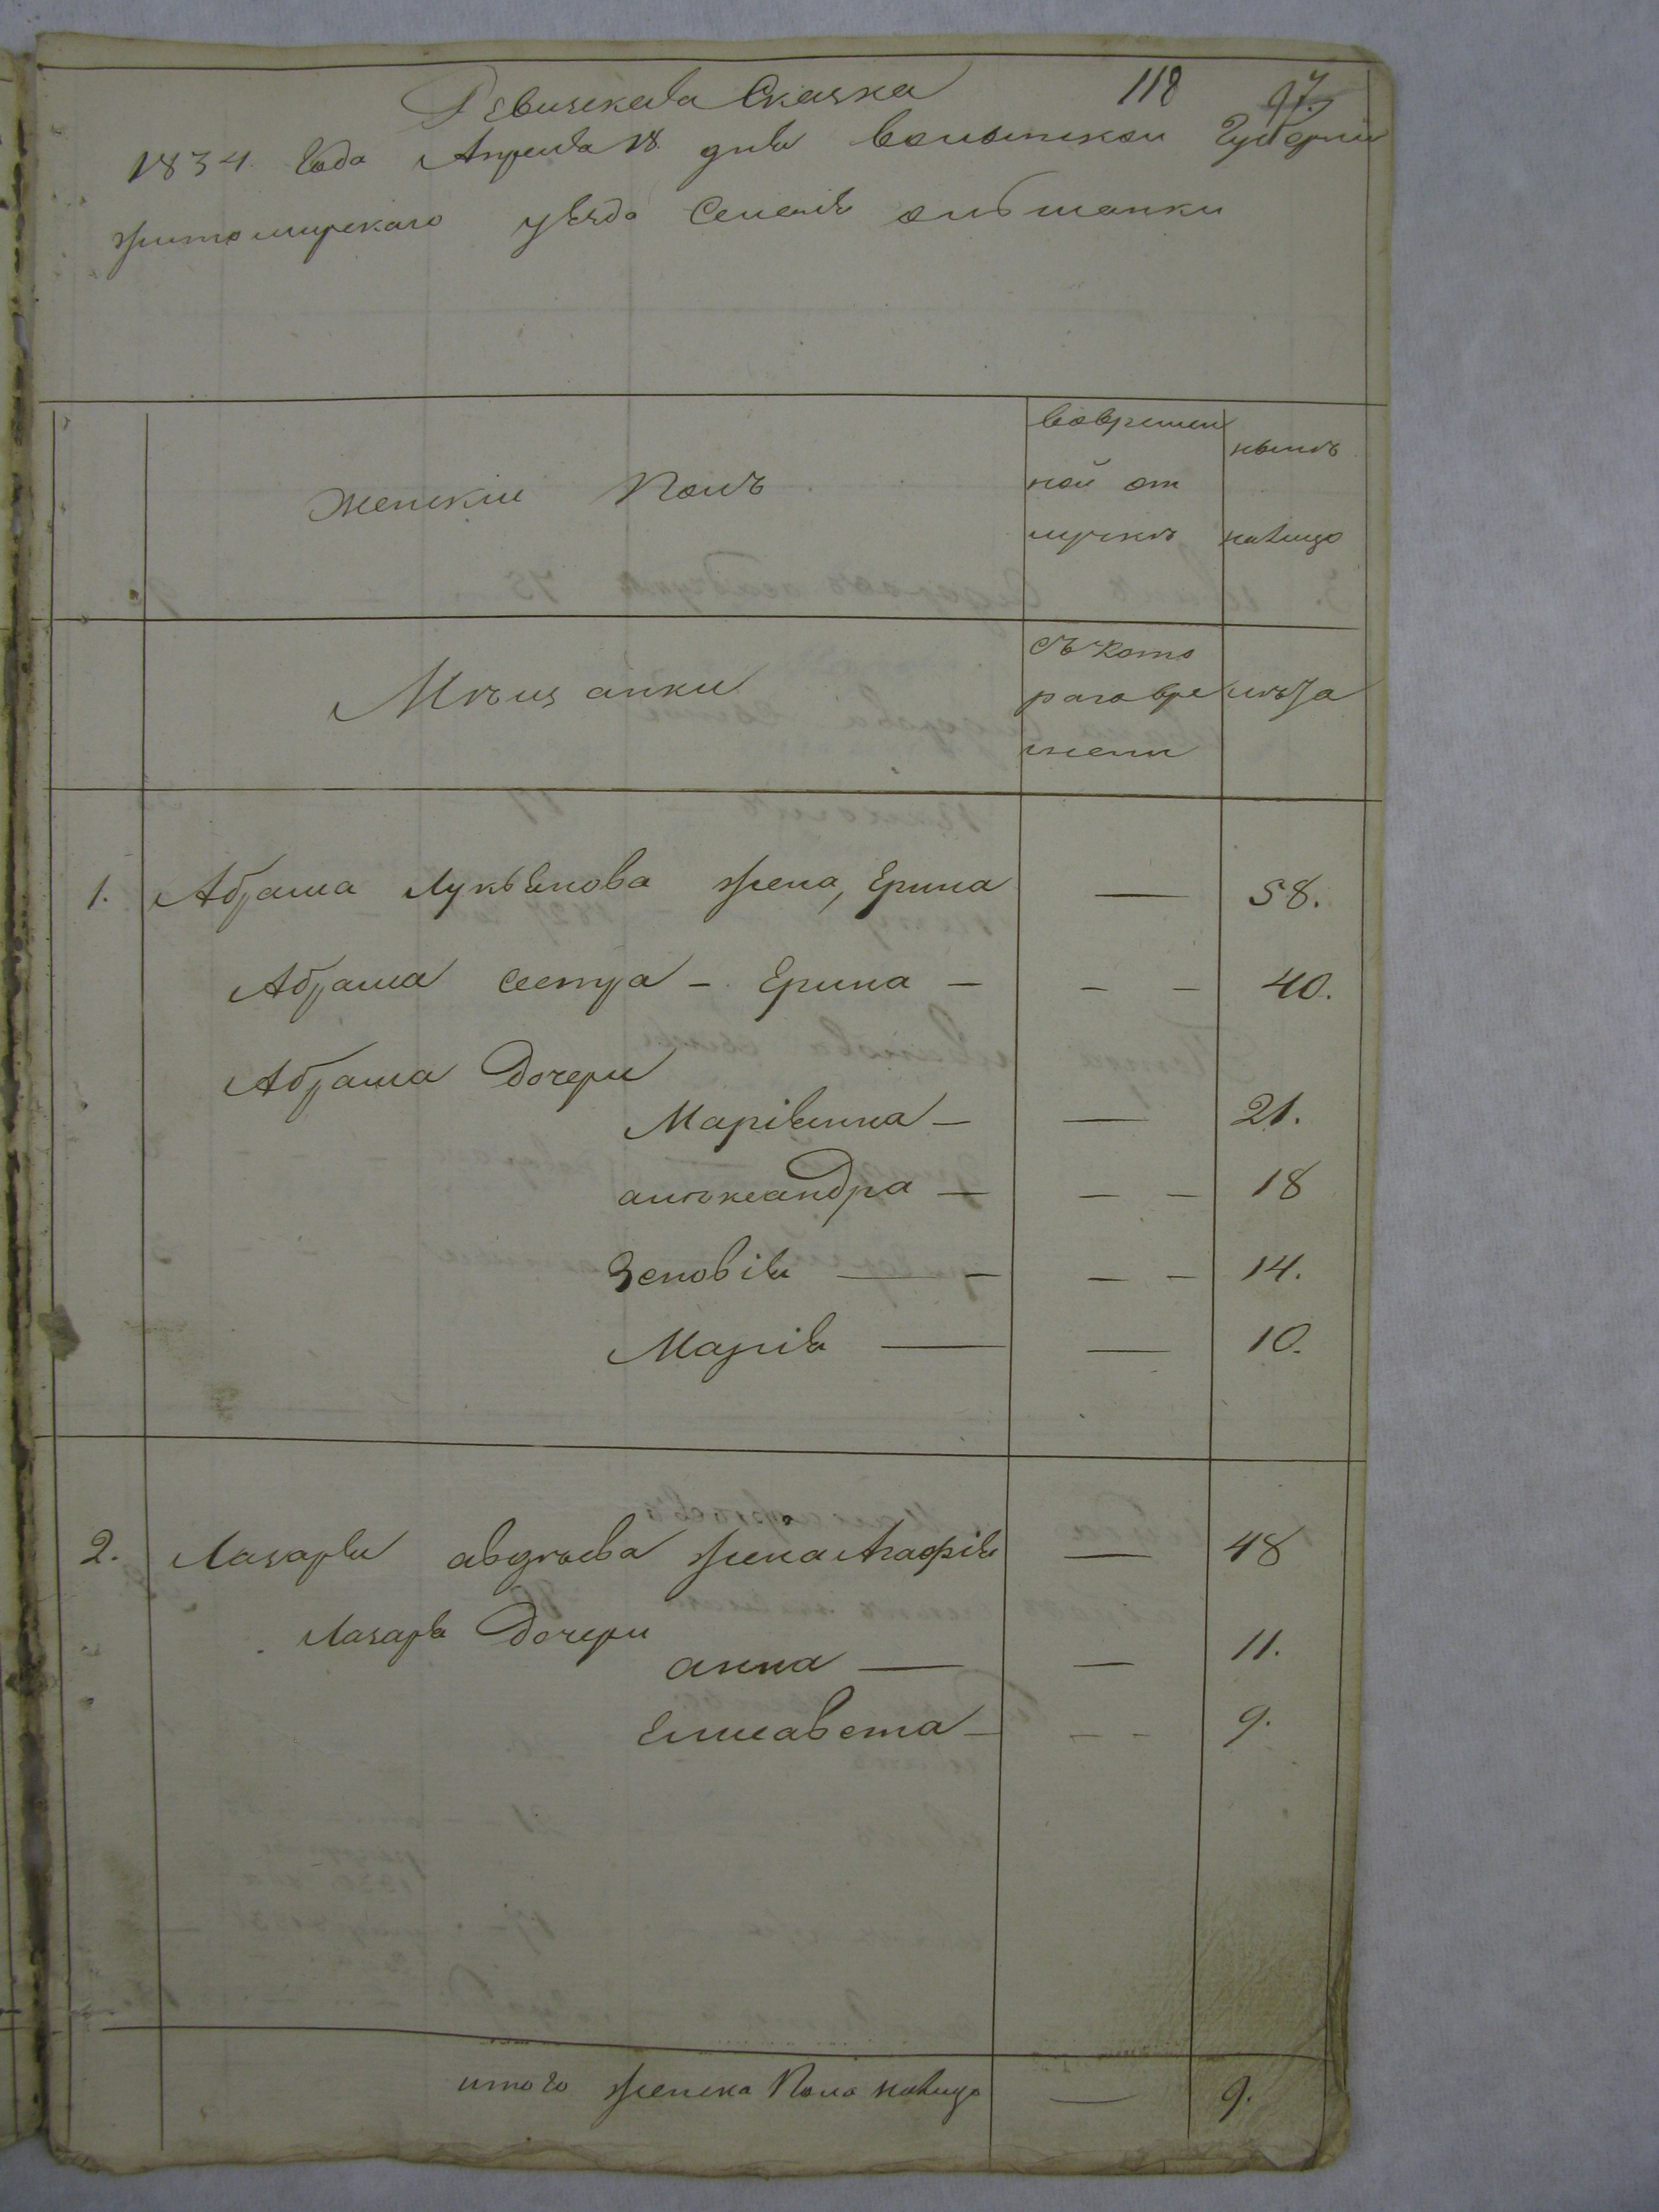 Ревизская Сказка 118 97
1834 года Апреля 18 дня волынской Губернiи
житомирскаго уѣзда Селенiя ольшанки
женскiи Полъ
вовремен
ной от
лучкѣ
нынѣ
налицо
Мѣщанки
съ кото
раго вре
мени
лѣта
1. Абрама Лукьянова жена, Ерина — 58.
Абрама сестра - Ерина — - - 40.
Абрама Дочери
Марiянна — — 21.
алѣксандра — - - 18
Зеновiя — - - - 14.
Марiя — — 10.
2. Лазаря авдѣева жена Агафiя — 48
Лазаря Дочери
анна — — 11.
Елисавета - - - 9.
итого женска Пола налицо — 9.